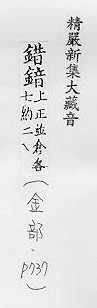 精嚴新集大藏音
錯䥘上正並倉各
七約二乀
（金部．p737）